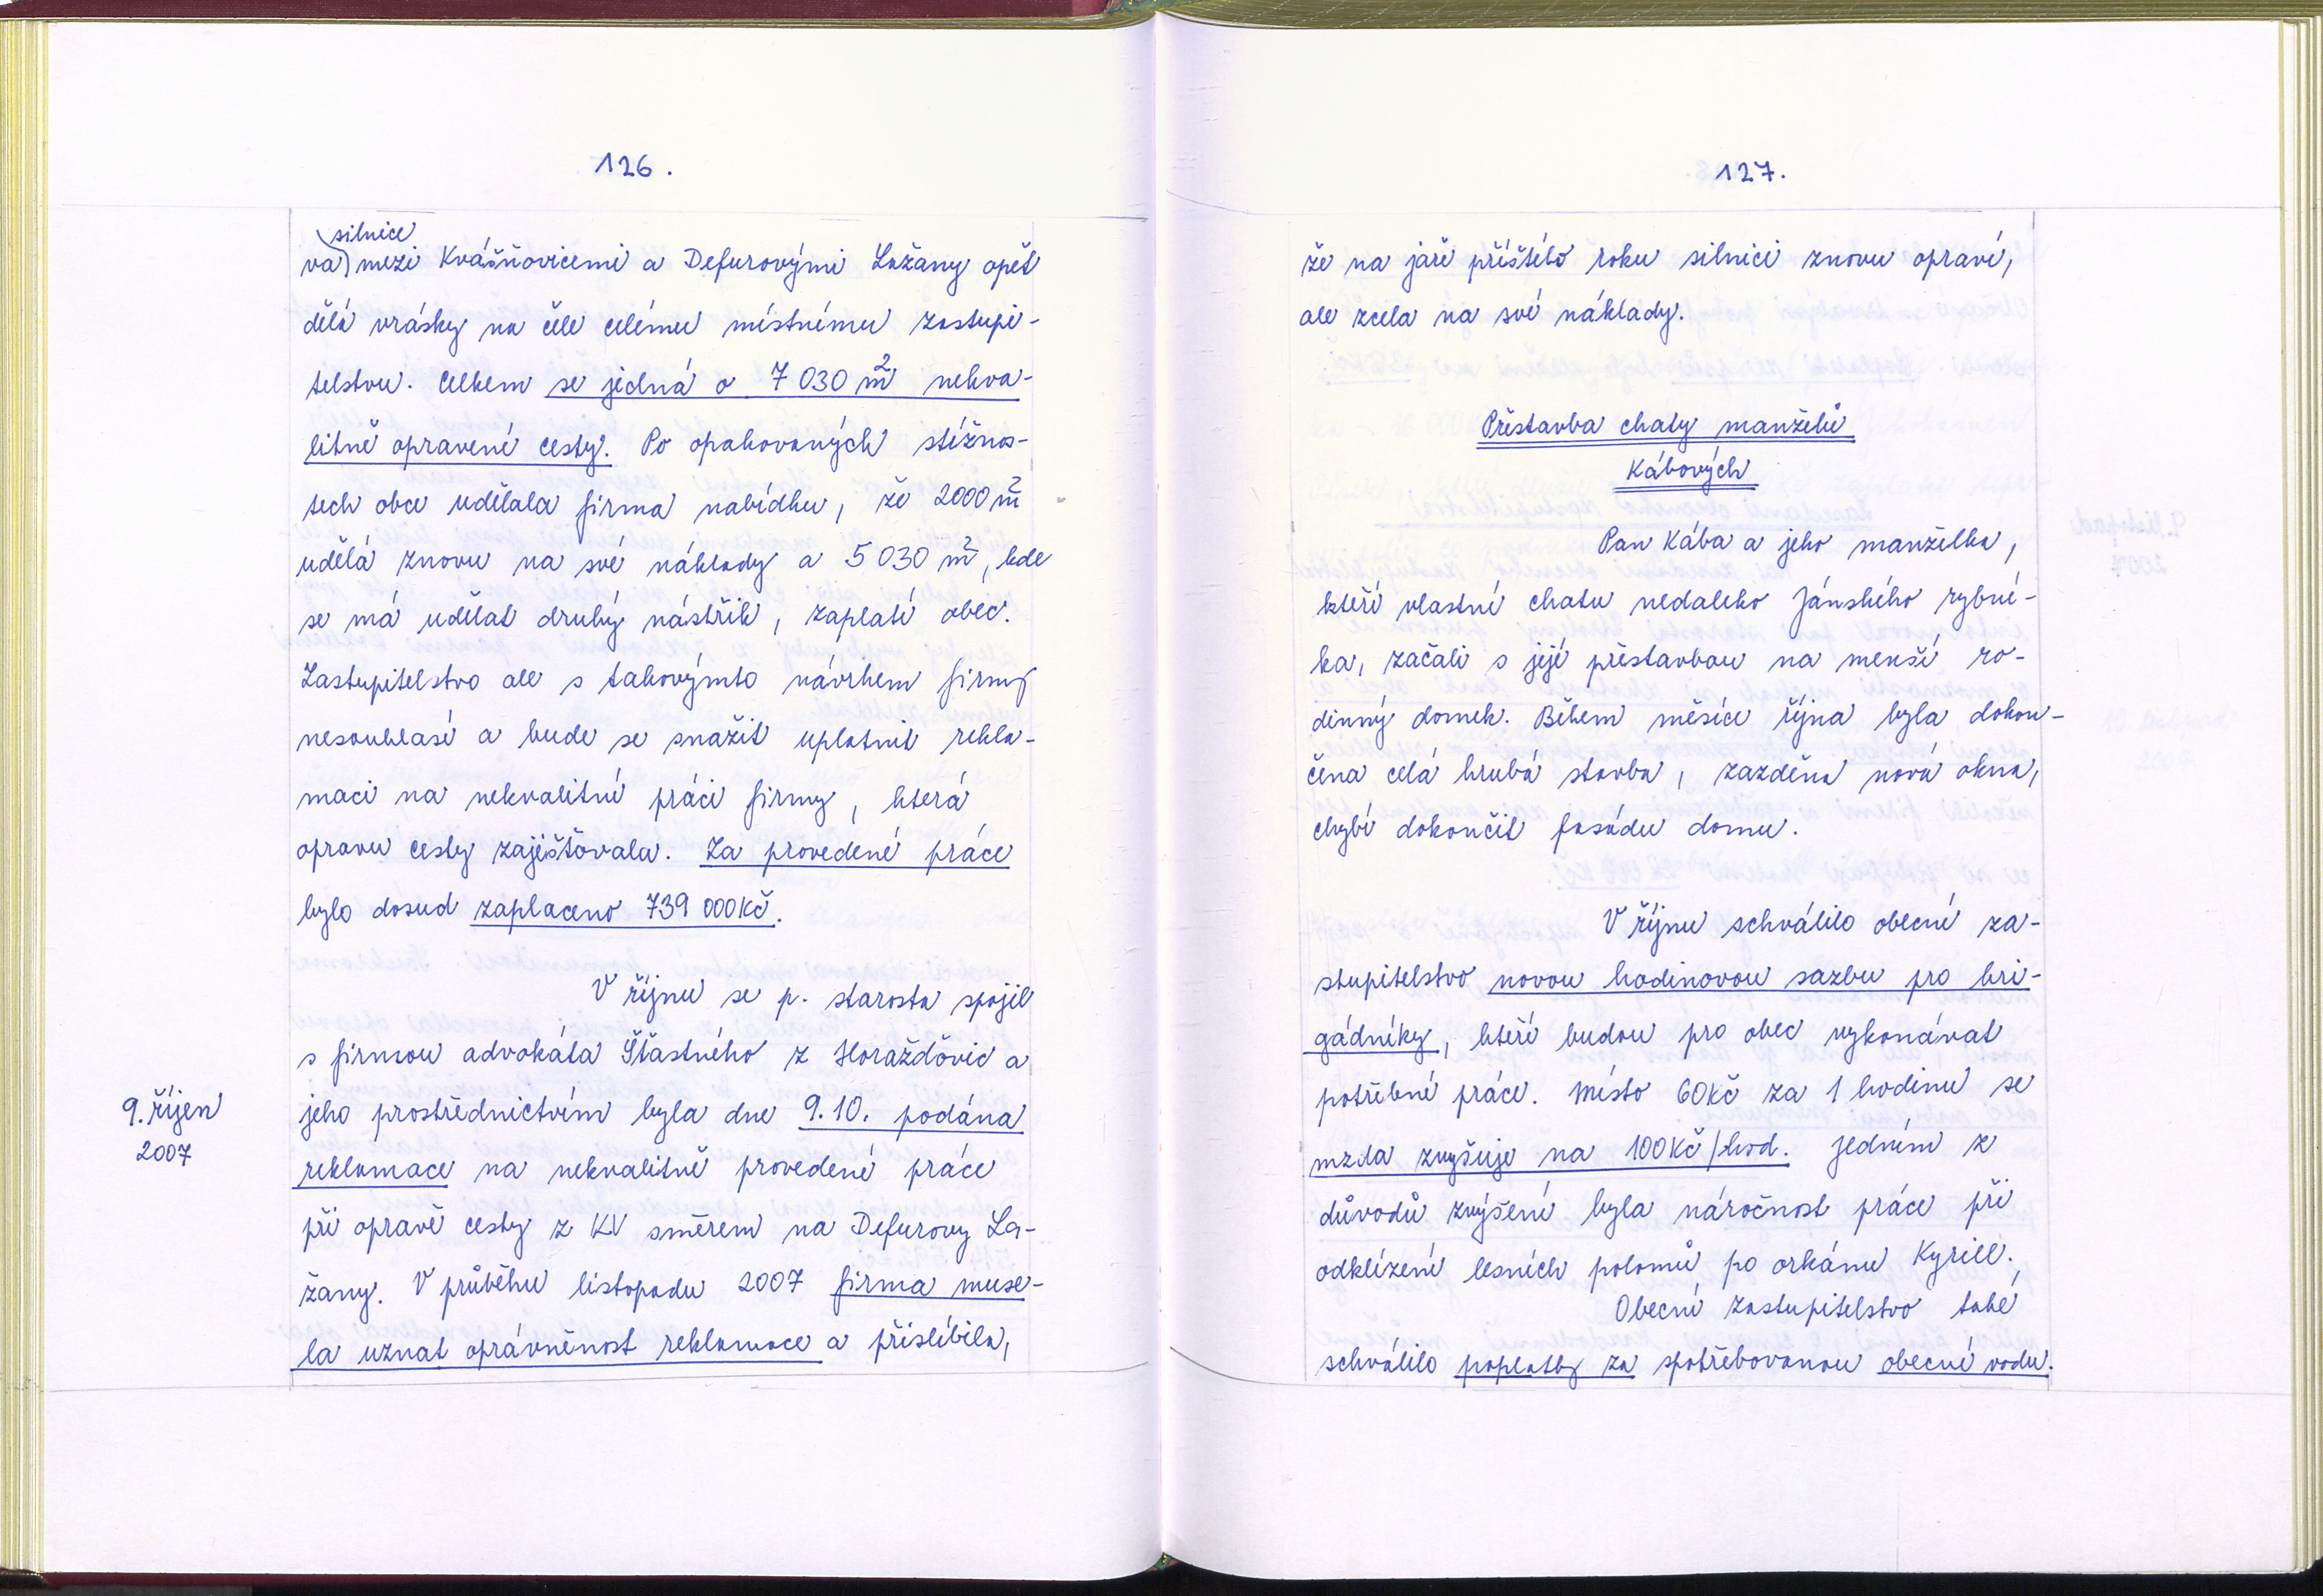 126.
silnice
va) mezi Kvášňovicemi a Defurovými Lažany opět
dělá vrásky na čele celému místnímu zastupi-
telstvu. Celkem se jedná o 7 030 m² nekva-
litně opravené cesty. Po opakovaných stížnos-
tech obce udělala firma nabídku, že 2000 m²
udělá znovu na své náklady a 5 030 m², kde
se má udělat druhý nástřik, zaplatí obec.
Zastupitelstvo ale s takovýmto návrhem firmy
nesouhlasí a bude se snažit uplatnit rekla-
maci na nekvalitní práci firmy, která
opravu cesty zajišťovala. Za provedené práce
bylo dosud zaplaceno 739 000 Kč.
V říjnu se p. starosta spojil
s firmou advokáta Šťastného z Horažďovic a
9. říjen
2007
jeho prostřednictvím byla dne 9.10. podána
reklamace na nekvalitně provedené práce
při opravě cesty z KV směrem na Defurovy La-
žany. V průběhu listopadu 2007 firma muse-
la uznat oprávněnost reklamace a přislíbila,
127.
že na jaře příštího roku silnici znovu opraví,
ale zcela na své náklady.
Přestavba chaty manželů
Kábových
Pan Kába a jeho manželka,
kteří vlastní chatu nedaleko Jánského rybní-
ka, začali s její přestavbou na menší ro-
dinný domek. Během měsíce října byla dokon-
čena celá hrubá stavba, zazděna nová okna,
chybí dokončit fasádu domu.
V říjnu schválilo obecní za-
stupitelstvo novou hodinovou sazbu pro bri-
gádníky, kteří budou pro obec vykonávat
potřebné práce. Místo 60 Kč za 1 hodinu se
mzda zvyšuje na 100 Kč/hod. Jedním z
důvodů zvýšení byla náročnost práce při
odklízení lesních polomů po orkánu Kyrill.
Obecní zastupitelstvo také
schválilo poplatky za spotřebovanou obecní vodu.